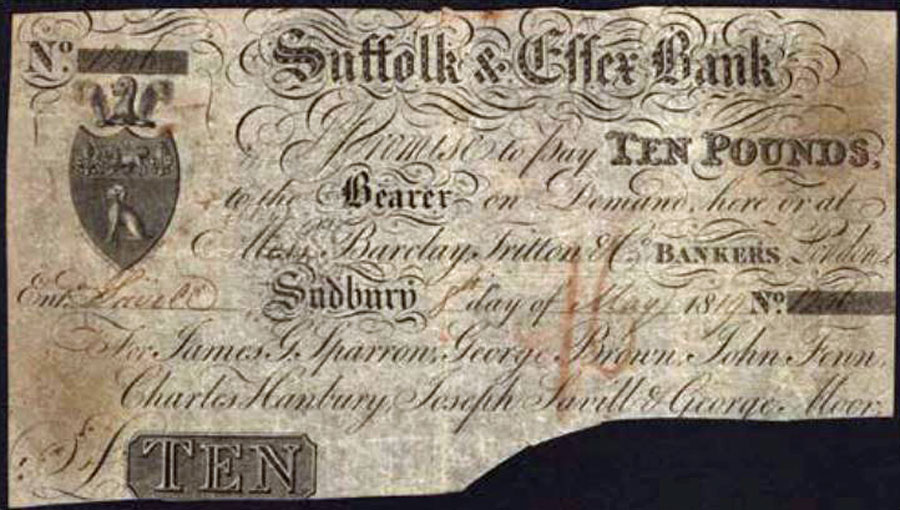 No. Suffolk & Essex Bank
I Promise to pay TEN POUNDS,
to the Bearer on Demand, here or at
Messrs Barclay, Tritton & Co. BANKERS London
Ent. Sudbury 8th day of May 1819 No.
For James G. Sparrow, George Brown, John Fenn,
Charles Hanbury, Joseph Savill & George Moor.
£ TEN